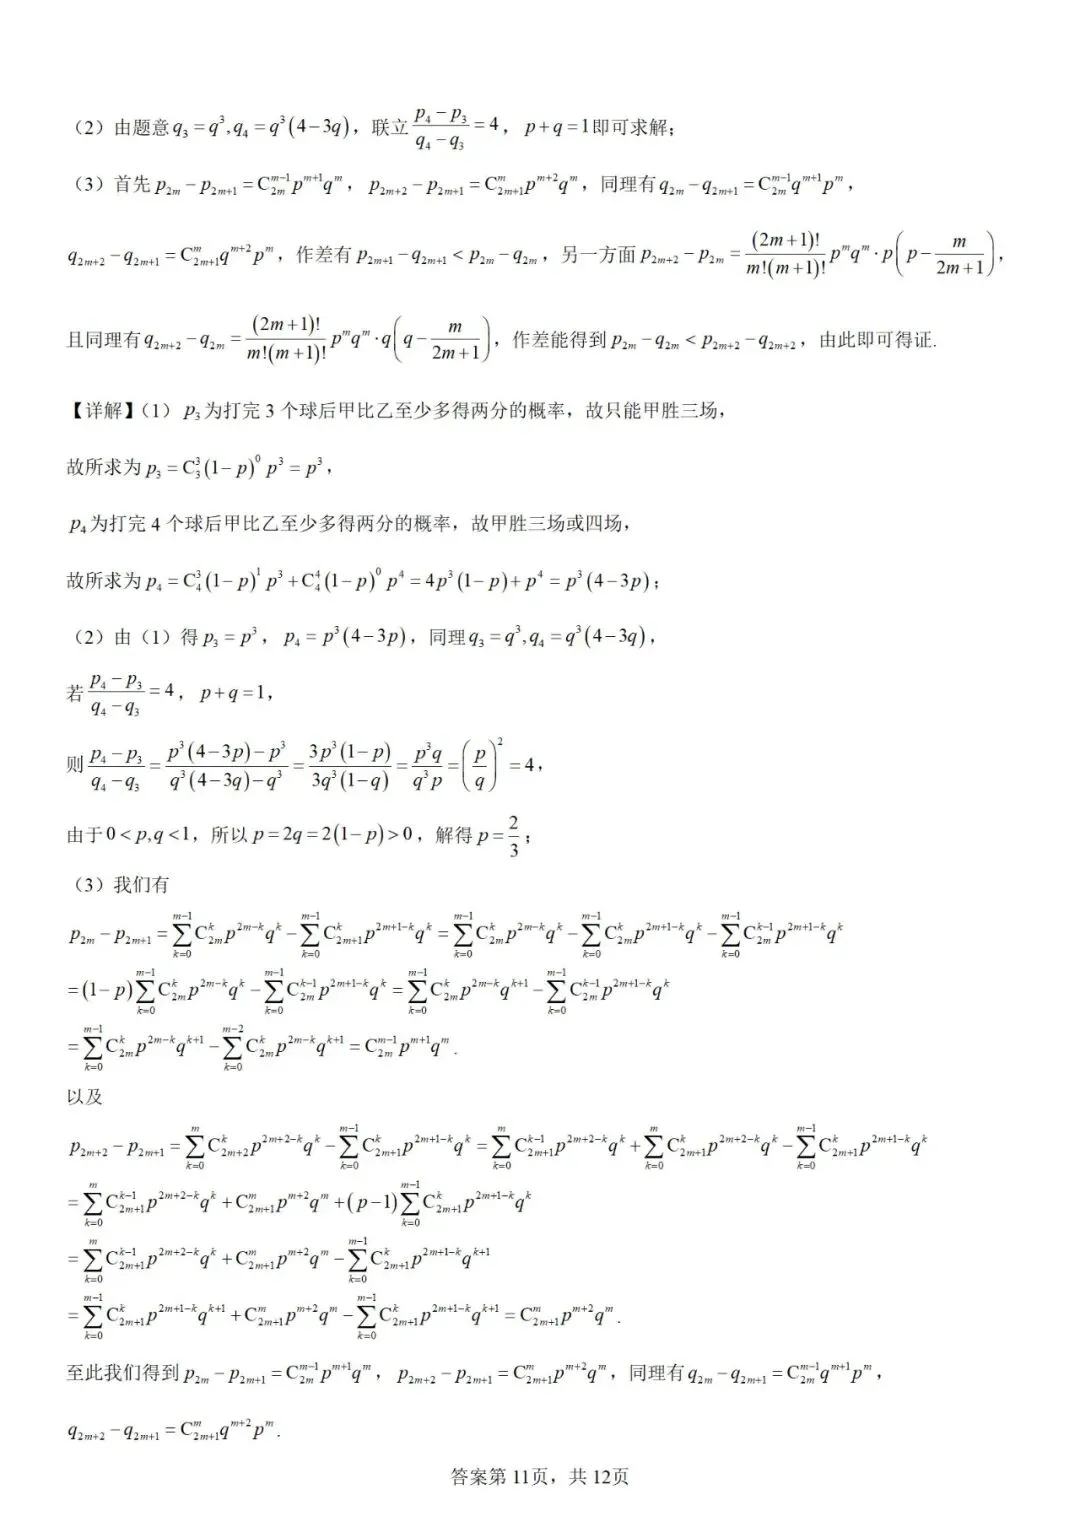 （2）由题意 $q_3=q^3,q_4=q^3(4-3q)$，联立 $\frac{p_4-p_3}{q_4-q_3}=4$，$p+q=1$ 即可求解；
（3）首先 $p_{2m}-p_{2m+1}=\mathrm{C}_{2m}^{m-1}p^{m+1}q^m$，$p_{2m+2}-p_{2m+1}=\mathrm{C}_{2m+1}^{m}p^{m+2}q^m$，同理有 $q_{2m}-q_{2m+1}=\mathrm{C}_{2m}^{m-1}q^{m+1}p^m$，
$q_{2m+2}-q_{2m+1}=\mathrm{C}_{2m+1}^{m}q^{m+2}p^m$，作差有 $p_{2m+1}-q_{2m+1}<p_{2m}-q_{2m}$，另一方面 $p_{2m+2}-p_{2m}=\frac{(2m+1)!}{m!(m+1)!}p^mq^m\cdot p\left(p-\frac{m}{2m+1}\right)$，
且同理有 $q_{2m+2}-q_{2m}=\frac{(2m+1)!}{m!(m+1)!}p^mq^m\cdot q\left(q-\frac{m}{2m+1}\right)$，作差能得到 $p_{2m}-q_{2m}<p_{2m+2}-q_{2m+2}$，由此即可得证.
【详解】（1）$p_3$ 为打完 3 个球后甲比乙至少多得两分的概率，故只能甲胜三场，
故所求为 $p_3=\mathrm{C}_3^3(1-p)^0p^3=p^3$，
$p_4$ 为打完 4 个球后甲比乙至少多得两分的概率，故甲胜三场或四场，
故所求为 $p_4=\mathrm{C}_4^3(1-p)^1p^3+\mathrm{C}_4^4(1-p)^0p^4=4p^3(1-p)+p^4=p^3(4-3p)$；
（2）由（1）得 $p_3=p^3$，$p_4=p^3(4-3p)$，同理 $q_3=q^3,q_4=q^3(4-3q)$，
若 $\frac{p_4-p_3}{q_4-q_3}=4$，$p+q=1$，
则 $\frac{p_4-p_3}{q_4-q_3}=\frac{p^3(4-3p)-p^3}{q^3(4-3q)-q^3}=\frac{3p^3(1-p)}{3q^3(1-q)}=\frac{p^3q}{q^3p}=\left(\frac{p}{q}\right)^2=4$，
由于 $0<p,q<1$，所以 $p=2q=2(1-p)>0$，解得 $p=\frac{2}{3}$；
（3）我们有
$p_{2m}-p_{2m+1}=\sum_{k=0}^{m-1}\mathrm{C}_{2m}^{k}p^{2m-k}q^k-\sum_{k=0}^{m-1}\mathrm{C}_{2m+1}^{k}p^{2m+1-k}q^k=\sum_{k=0}^{m-1}\mathrm{C}_{2m}^{k}p^{2m-k}q^k-\sum_{k=0}^{m-1}\mathrm{C}_{2m}^{k}p^{2m+1-k}q^k-\sum_{k=0}^{m-1}\mathrm{C}_{2m}^{k-1}p^{2m+1-k}q^k$
$=(1-p)\sum_{k=0}^{m-1}\mathrm{C}_{2m}^{k}p^{2m-k}q^k-\sum_{k=0}^{m-1}\mathrm{C}_{2m}^{k-1}p^{2m+1-k}q^k=\sum_{k=0}^{m-1}\mathrm{C}_{2m}^{k}p^{2m-k}q^{k+1}-\sum_{k=0}^{m-1}\mathrm{C}_{2m}^{k-1}p^{2m+1-k}q^k$
$=\sum_{k=0}^{m-1}\mathrm{C}_{2m}^{k}p^{2m-k}q^{k+1}-\sum_{k=0}^{m-2}\mathrm{C}_{2m}^{k}p^{2m-k}q^{k+1}=\mathrm{C}_{2m}^{m-1}p^{m+1}q^m$.
以及
$p_{2m+2}-p_{2m+1}=\sum_{k=0}^{m}\mathrm{C}_{2m+2}^{k}p^{2m+2-k}q^k-\sum_{k=0}^{m-1}\mathrm{C}_{2m+1}^{k}p^{2m+1-k}q^k=\sum_{k=0}^{m}\mathrm{C}_{2m+1}^{k-1}p^{2m+2-k}q^k+\sum_{k=0}^{m}\mathrm{C}_{2m+1}^{k}p^{2m+2-k}q^k-\sum_{k=0}^{m-1}\mathrm{C}_{2m+1}^{k}p^{2m+1-k}q^k$
$=\sum_{k=0}^{m}\mathrm{C}_{2m+1}^{k-1}p^{2m+2-k}q^k+\mathrm{C}_{2m+1}^{m}p^{m+2}q^m+(p-1)\sum_{k=0}^{m-1}\mathrm{C}_{2m+1}^{k}p^{2m+1-k}q^k$
$=\sum_{k=0}^{m}\mathrm{C}_{2m+1}^{k-1}p^{2m+2-k}q^k+\mathrm{C}_{2m+1}^{m}p^{m+2}q^m-\sum_{k=0}^{m-1}\mathrm{C}_{2m+1}^{k}p^{2m+1-k}q^{k+1}$
$=\sum_{k=0}^{m-1}\mathrm{C}_{2m+1}^{k}p^{2m+1-k}q^{k+1}+\mathrm{C}_{2m+1}^{m}p^{m+2}q^m-\sum_{k=0}^{m-1}\mathrm{C}_{2m+1}^{k}p^{2m+1-k}q^{k+1}=\mathrm{C}_{2m+1}^{m}p^{m+2}q^m$.
至此我们得到 $p_{2m}-p_{2m+1}=\mathrm{C}_{2m}^{m-1}p^{m+1}q^m$，$p_{2m+2}-p_{2m+1}=\mathrm{C}_{2m+1}^{m}p^{m+2}q^m$，同理有 $q_{2m}-q_{2m+1}=\mathrm{C}_{2m}^{m-1}q^{m+1}p^m$，
$q_{2m+2}-q_{2m+1}=\mathrm{C}_{2m+1}^{m}q^{m+2}p^m$.
答案第 11页，共 12页